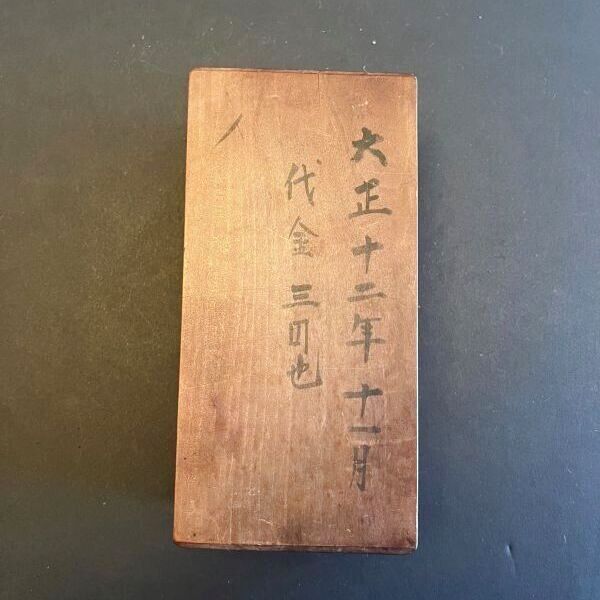 大正十二年十一月
代金三円也